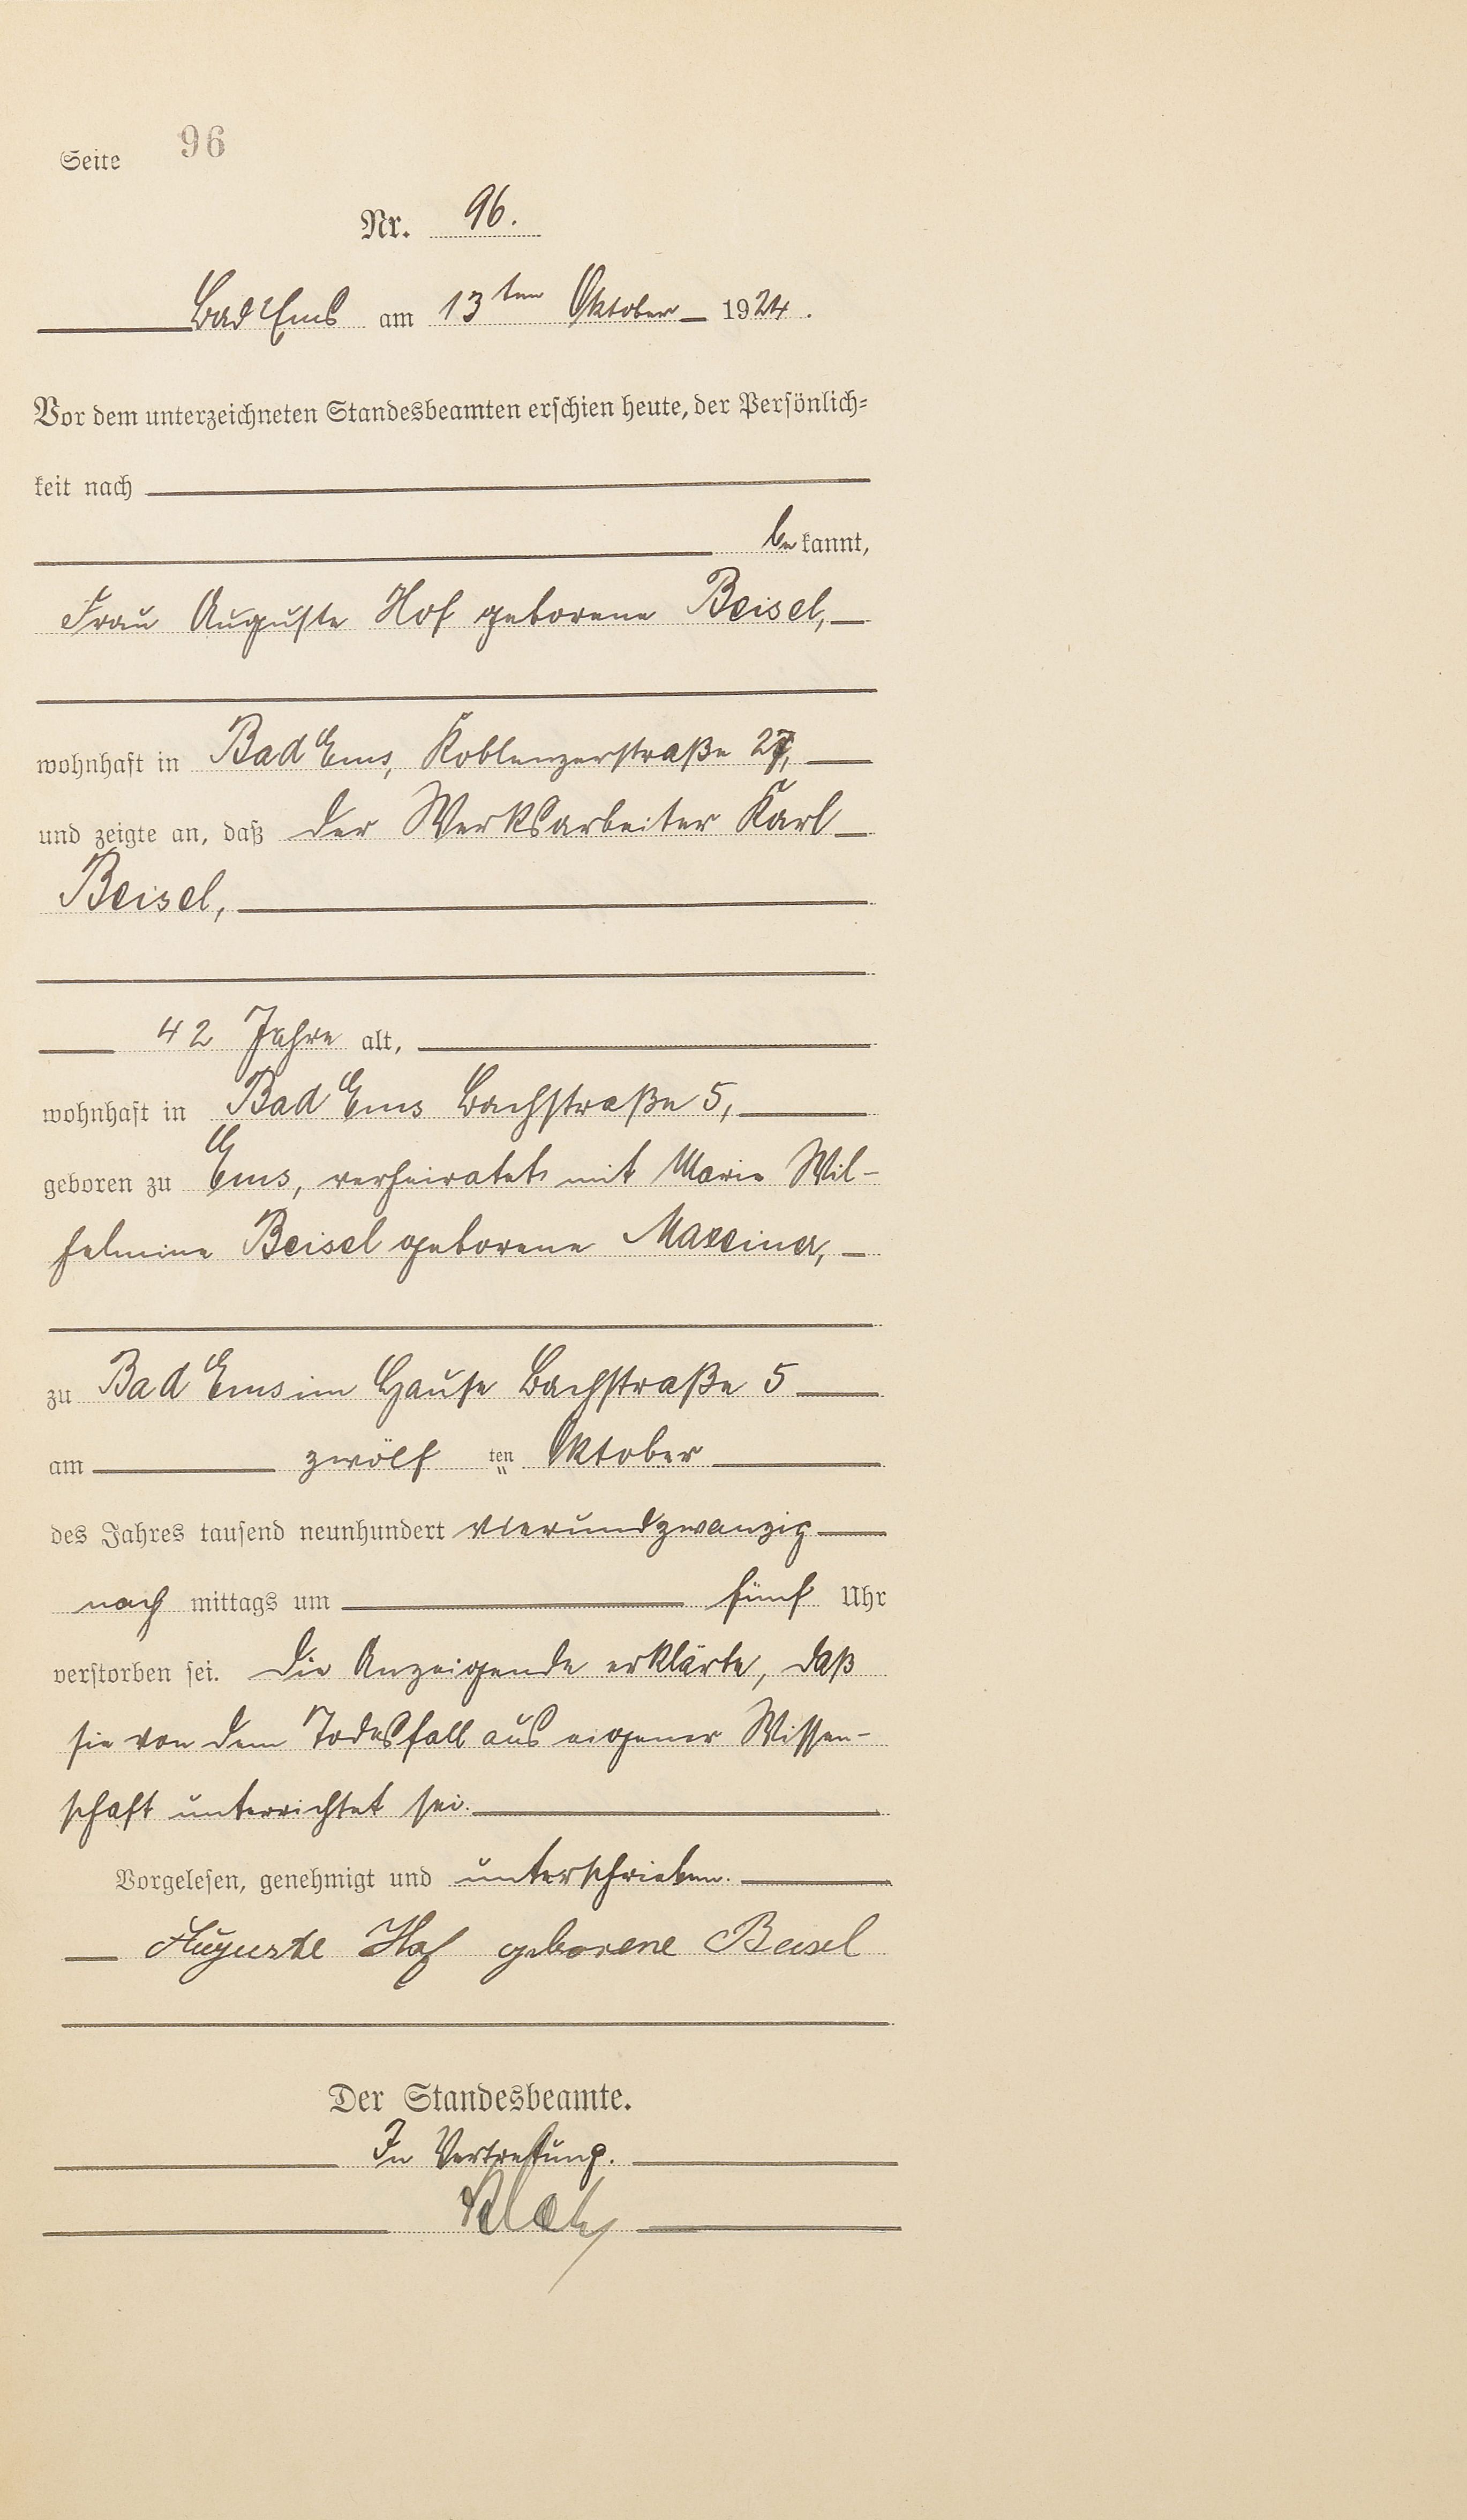 Seite 96
Nr. 96.
Bad Ems am 13ten Oktober 1924.
Vor dem unterzeichneten Standesbeamten erschien heute, der Persönlich-
keit nach
bekannt,
Frau Auguste Hof geborene Beisel,
wohnhaft in Bad Ems, Koblenzerstraße 27,
und zeigte an, daß der Werksarbeiter Karl
Beisel,
42 Jahre alt,
wohnhaft in Bad Ems Bachstraße 5,
geboren zu Ems, verheiratet mit Marie Wil-
helmine Beisel geborene Maxeiner,
zu Bad Ems im Hause Bachstraße 5
am zwölf ten Oktober
des Jahres tausend neunhundert vierundzwanzig
nach mittags um fünf Uhr
verstorben sei. Die Anzeigende erklärte, daß
sie von dem Todesfall aus eigener Wissen-
schaft unterrichtet sei.
Vorgelesen, genehmigt und unterschrieben.
Auguste Hof geborene Beisel
Der Standesbeamte.
In Vertretung.